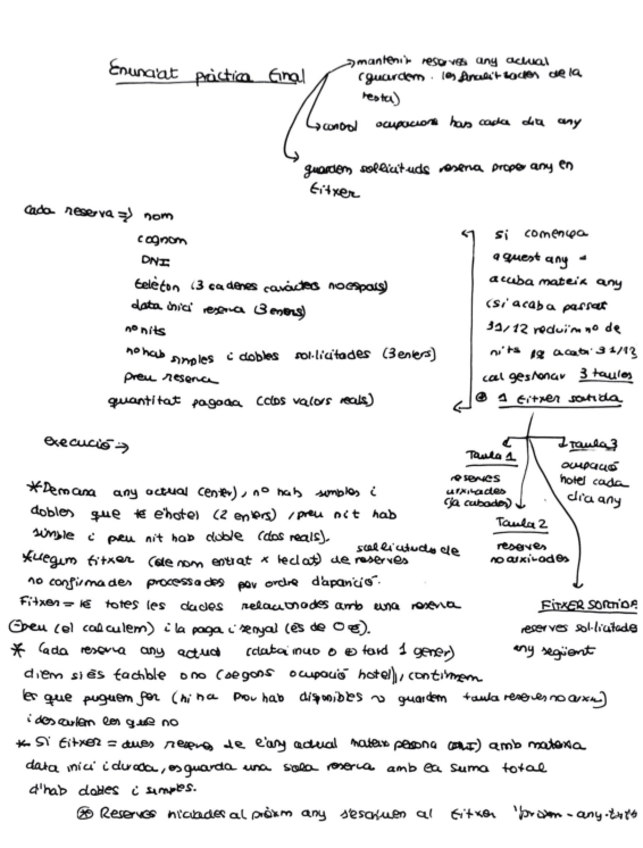 Enunciat pràctica final
→ mantenir reserves any actual
(guardem les finalitzades de la
resta)
↳ control ocupacions hab cada dia any
guardem sol·licituds reserva proper any en
fitxer
cada reserva => nom
cognom
DNI
telèfon (3 cadenes caràcters no espais)
data inici reserva (3 enters)
nº nits
nº hab simples i dobles sol·licitades (3 enters)
preu reserva
quantitat pagada (dos valors reals)
si comença
aquest any =
acaba mateix any
(si acaba passat
31/12 reduim nº de
nits pq acabi 31/12
cal gestionar 3 taules
⊕ 1 fitxer sortida
Taula 1
reserves
arxivades
(ja acabades)
Taula 2
reserves
no arxivades
Taula 3
ocupació
hotel cada
dia any
FITXER SORTIDA
reserves sol·licitades
any següent
execució →
*Demana any actual (enter), nº hab simples i
dobles que té l'hotel (2 enters), preu nit hab
simple i preu nit hab doble (dos reals).
*Llegim fitxer (de nom entrat x teclat) de sol·licituds de reserves
no confirmades processades per ordre d'aparició.
Fitxer = té totes les dades relacionades amb una reserva
⊖ preu (el calculem) i la paga i senyal (és de 0€).
* Cada reserva any actual (data inici 0 ⊕ tard 1 gener)
diem si és factible o no (segons ocupació hotel), confirmem
les que puguem fer (hi ha prou hab disponibles → guardem taula reserves no arxiv)
i descartem les que no
* Si fitxer = dues reserves de l'any actual mateix persona (DNI) amb mateixa
data inici i durada, es guarda una sola reserva amb la suma total
d'hab dobles i simples.
⊛ Reserves iniciades al pròxim any s'escriuen al fitxer "proxim-any.txt"